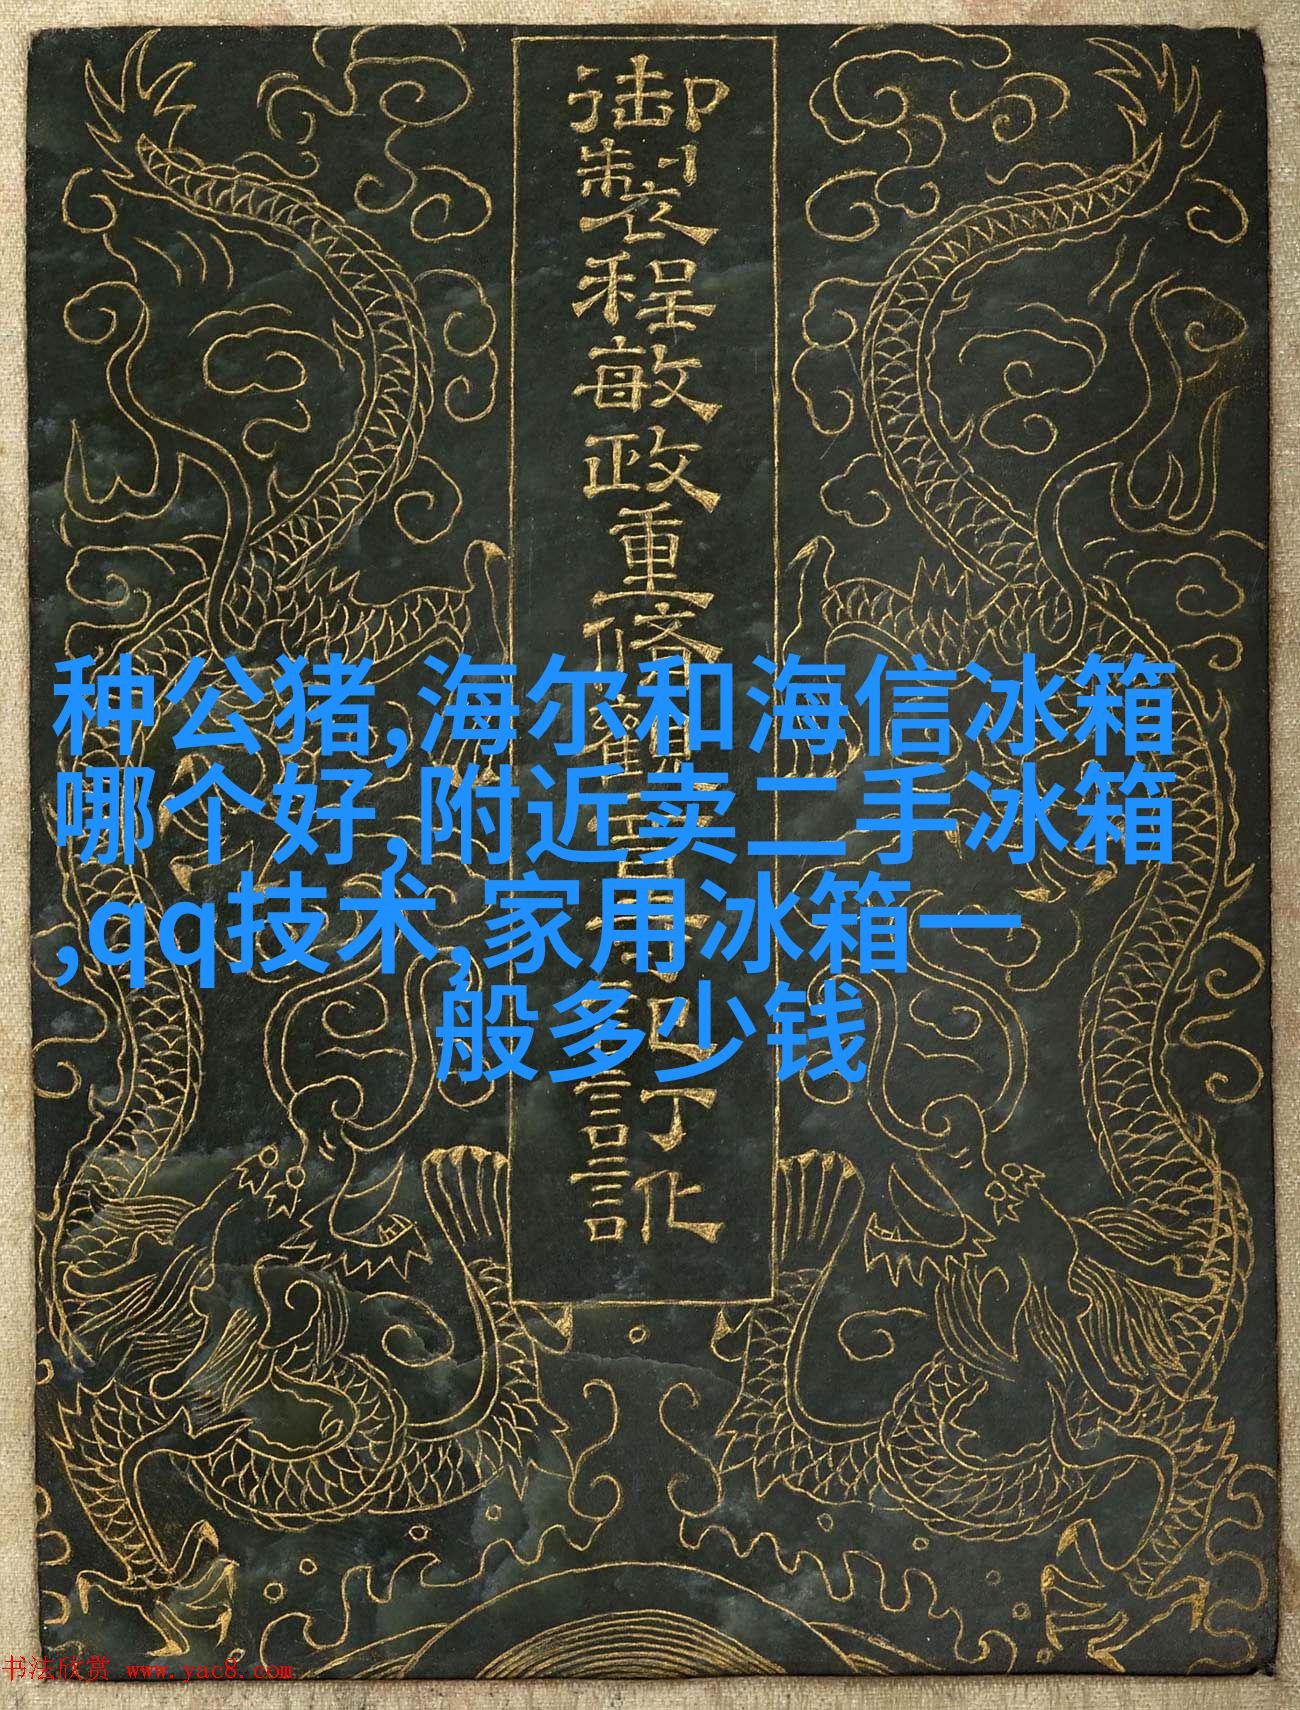 御製程敏政重修訂訛
种公猪,海尔和海信冰箱
哪个好,附近卖二手冰箱
,qq技术,家用冰箱一
般多少钱
书法欣赏 www.yac8.com